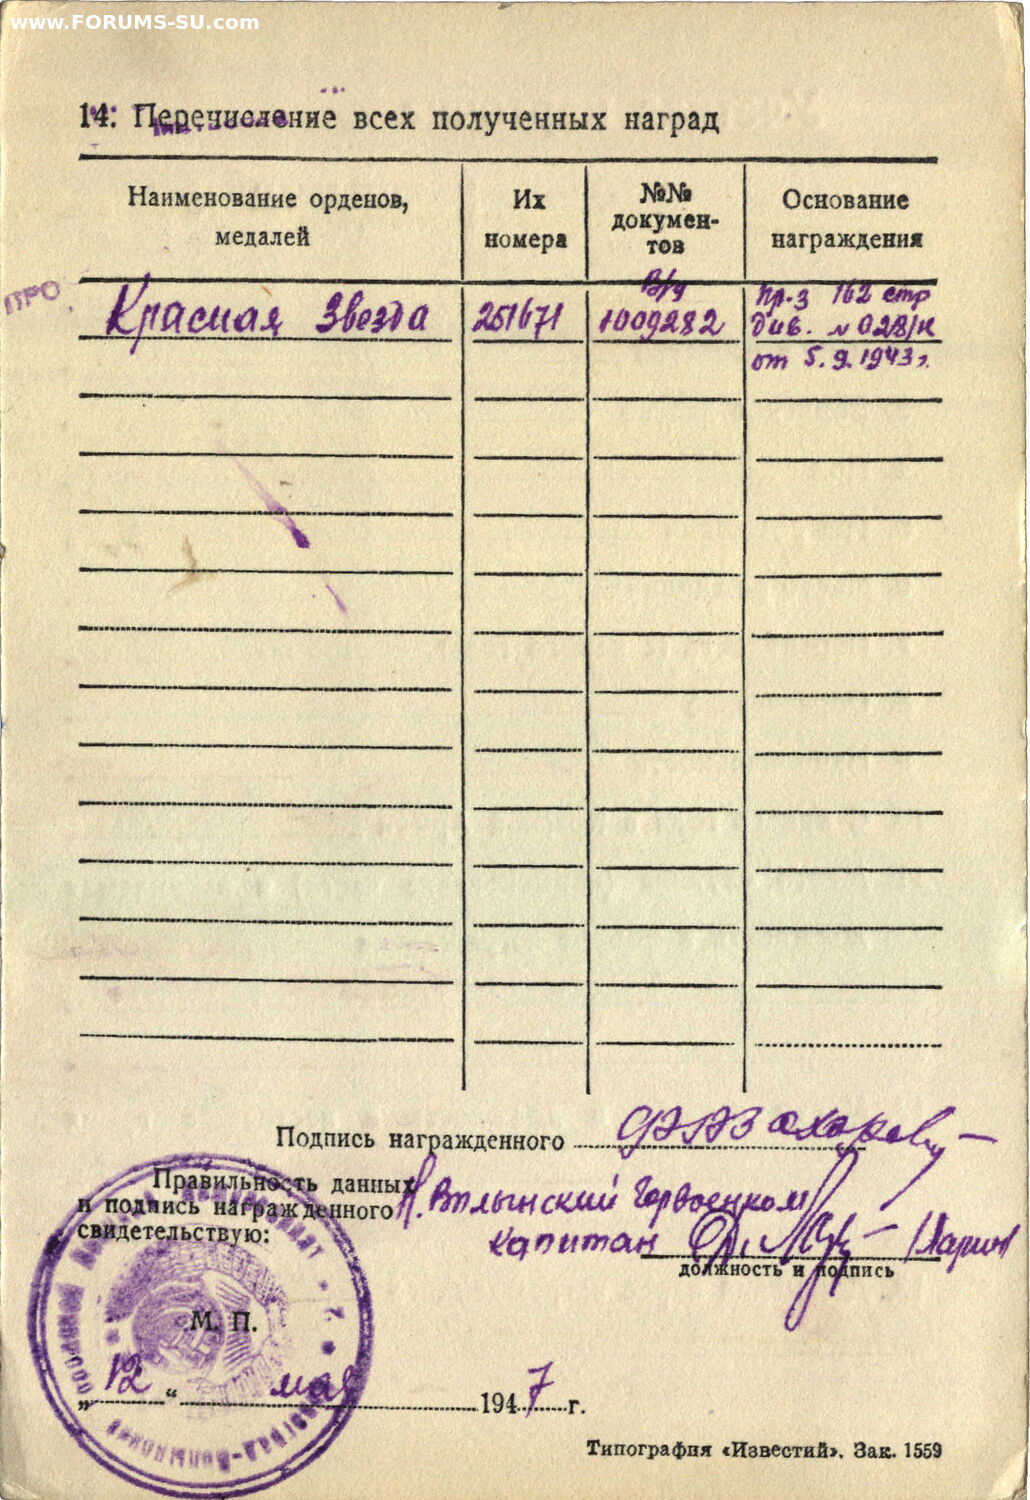 www.FORUMS-SU.com
14. Перечисление всех полученных наград
Наименование орденов, медалей
Их номера
№№ докумен-тов
Основание награждения
ПРО
Красная Звезда
251671
В/у
1009282
пр-з 162 стр
див. № 028/н
от 5.9.1943 г.
Подпись награжденного
Правильность данных
и подпись награжденного
свидетельствую:
Н. Волынский Горвоенком
капитан
должность и подпись
М. П.
„ 12 “ мая 1947 г.
Типография «Известий». Зак. 1559